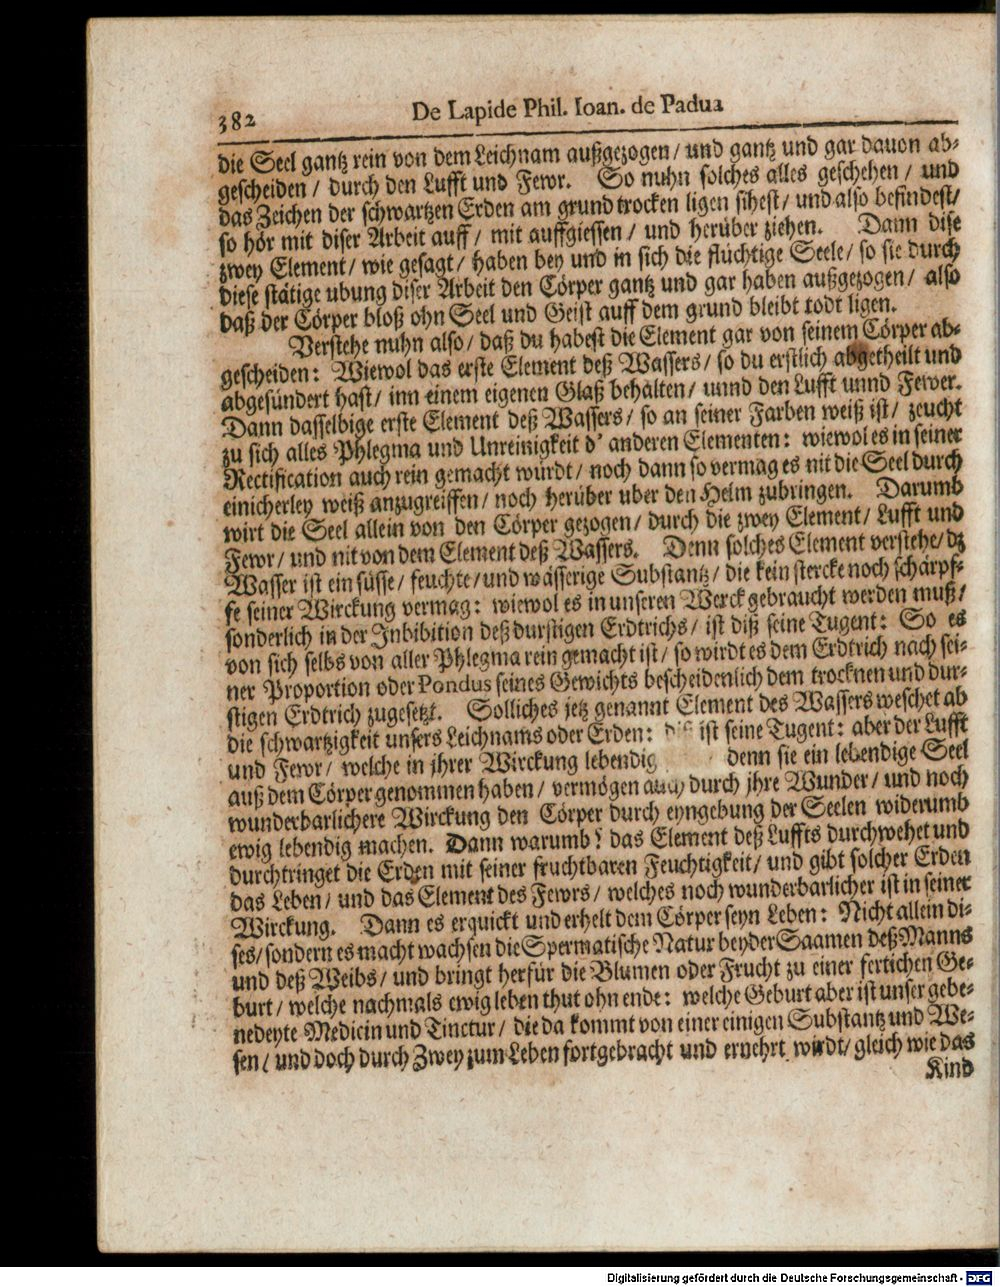 382
De Lapide Phil. Ioan. de Padua
die Seel gantz rein von dem Leichnam außgezogen / und gantz und gar dauon ab-
gescheiden / durch den Lufft und Fewr. So nuhn solches alles geschehen / und
das Zeichen der schwartzen Erden am grund trocken ligen sihest / und also befindest /
so hör mit diser Arbeit auff / mit auffgiessen / und herüber ziehen. Dann dise
zwey Element / wie gesagt / haben bey und in sich die flüchtige Seele / so sie durch
diese stätige ubung diser Arbeit den Cörper gantz und gar haben außgezogen / also
daß der Cörper bloß ohn Seel und Geist auff dem grund bleibt todt ligen.
Verstehe nuhn also / daß du habest die Element gar von seinem Cörper ab-
gescheiden: Wiewol das erste Element deß Wassers / so du erstlich abgetheilt und
abgesündert hast / inn einem eigenen Glaß behalten / unnd den Lufft unnd Fewer.
Dann dasselbige erste Element deß Wassers / so an seiner Farben weiß ist / zeucht
zu sich alles Phlegma und Unreinigkeit d' anderen Elementen: wiewol es in seiner
Rectification auch rein gemacht würdt / noch dann so vermag es nit die Seel durch
einicherley weiß anzugreiffen / noch herüber uber den Helm zubringen. Darumb
wirt die Seel allein von den Cörper gezogen / durch die zwey Element / Lufft und
Fewr / und nit von dem Element deß Wassers. Denn solches Element verstehe / dz
Wasser ist ein süsse / feuchte / und wässerige Substantz / die kein stercke noch schärpf-
fe seiner Wirckung vermag: wiewol es in unseren Werck gebraucht werden muß /
sonderlich in der Inbibition deß durstigen Erdtrichs / ist diß seine Tugent: So es
von sich selbs von aller Phlegma rein gemacht ist / so wirdt es dem Erdtrich nach sei-
ner Proportion oder Pondus seines Gewichts bescheidenlich dem trocknen und dur-
stigen Erdtrich zugesetzt. Solliches jetz genannt Element des Wassers weschet ab
die schwartzigkeit unsers Leichnams oder Erden: ist seine Tugent: aber der Lufft
und Fewr / welche in jhrer Wirckung lebendig denn sie ein lebendige Seel
auß dem Cörper genommen haben / vermögen auch durch jhre Wunder / und noch
wunderbarlichere Wirckung den Cörper durch eyngebung der Seelen widerumb
ewig lebendig machen. Dann warumb? das Element deß Luffts durchwehet und
durchtringet die Erden mit seiner fruchtbaren Feuchtigkeit / und gibt solcher Erden
das Leben / und das Element des Fewrs / welches noch wunderbarlicher ist in seiner
Wirckung. Dann es erquickt und erhelt dem Cörper seyn Leben: Nicht allein di-
ses / sondern es macht wachsen die Spermatische Natur beyder Saamen deß Manns
und deß Weibs / und bringt herfür die Blumen oder Frucht zu einer fertichen Ge-
burt / welche nachmals ewig leben thut ohn ende: welche Geburt aber ist unser gebe-
nedeyte Medicin und Tinctur / die da kommt von einer einigen Substantz und We-
sen / und doch durch Zwey zum Leben fortgebracht und ernehrt wirdt / gleich wie das
Kind
Digitalisierung gefördert durch die Deutsche Forschungsgemeinschaft - DFG